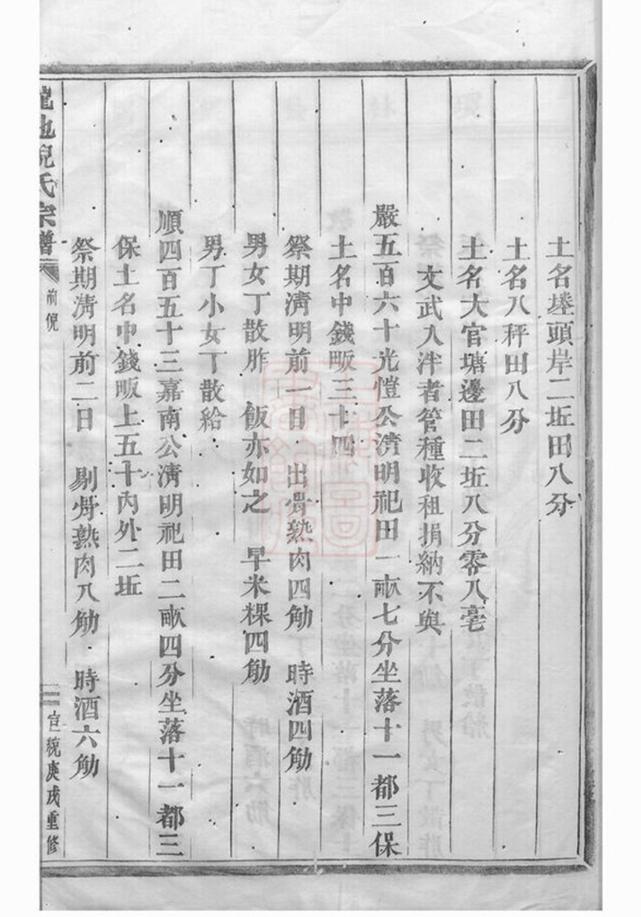 土名墶頭岸二坵田八分
土名八秤田八分
土名大官塘邊田二坵八分零八毫
文武入泮者管種收租捐納不與
嚴五百六十光愷公淸明祀田一畝七分坐落十一都三保
土名中錢畈三十四
祭期淸明前一日 出骨熟肉四觔 時酒四觔
男女丁散胙 飯亦如之 早米粿四觔
男丁小女丁散給
順四百五十三嘉南公淸明祀田二畝四分坐落十一都三
保土名中錢畈上五十內外二坵
祭期淸明前二日 剔骨熟肉八觔 時酒六觔
龍池倪氏宗譜 前倪 宣統庚戌重修